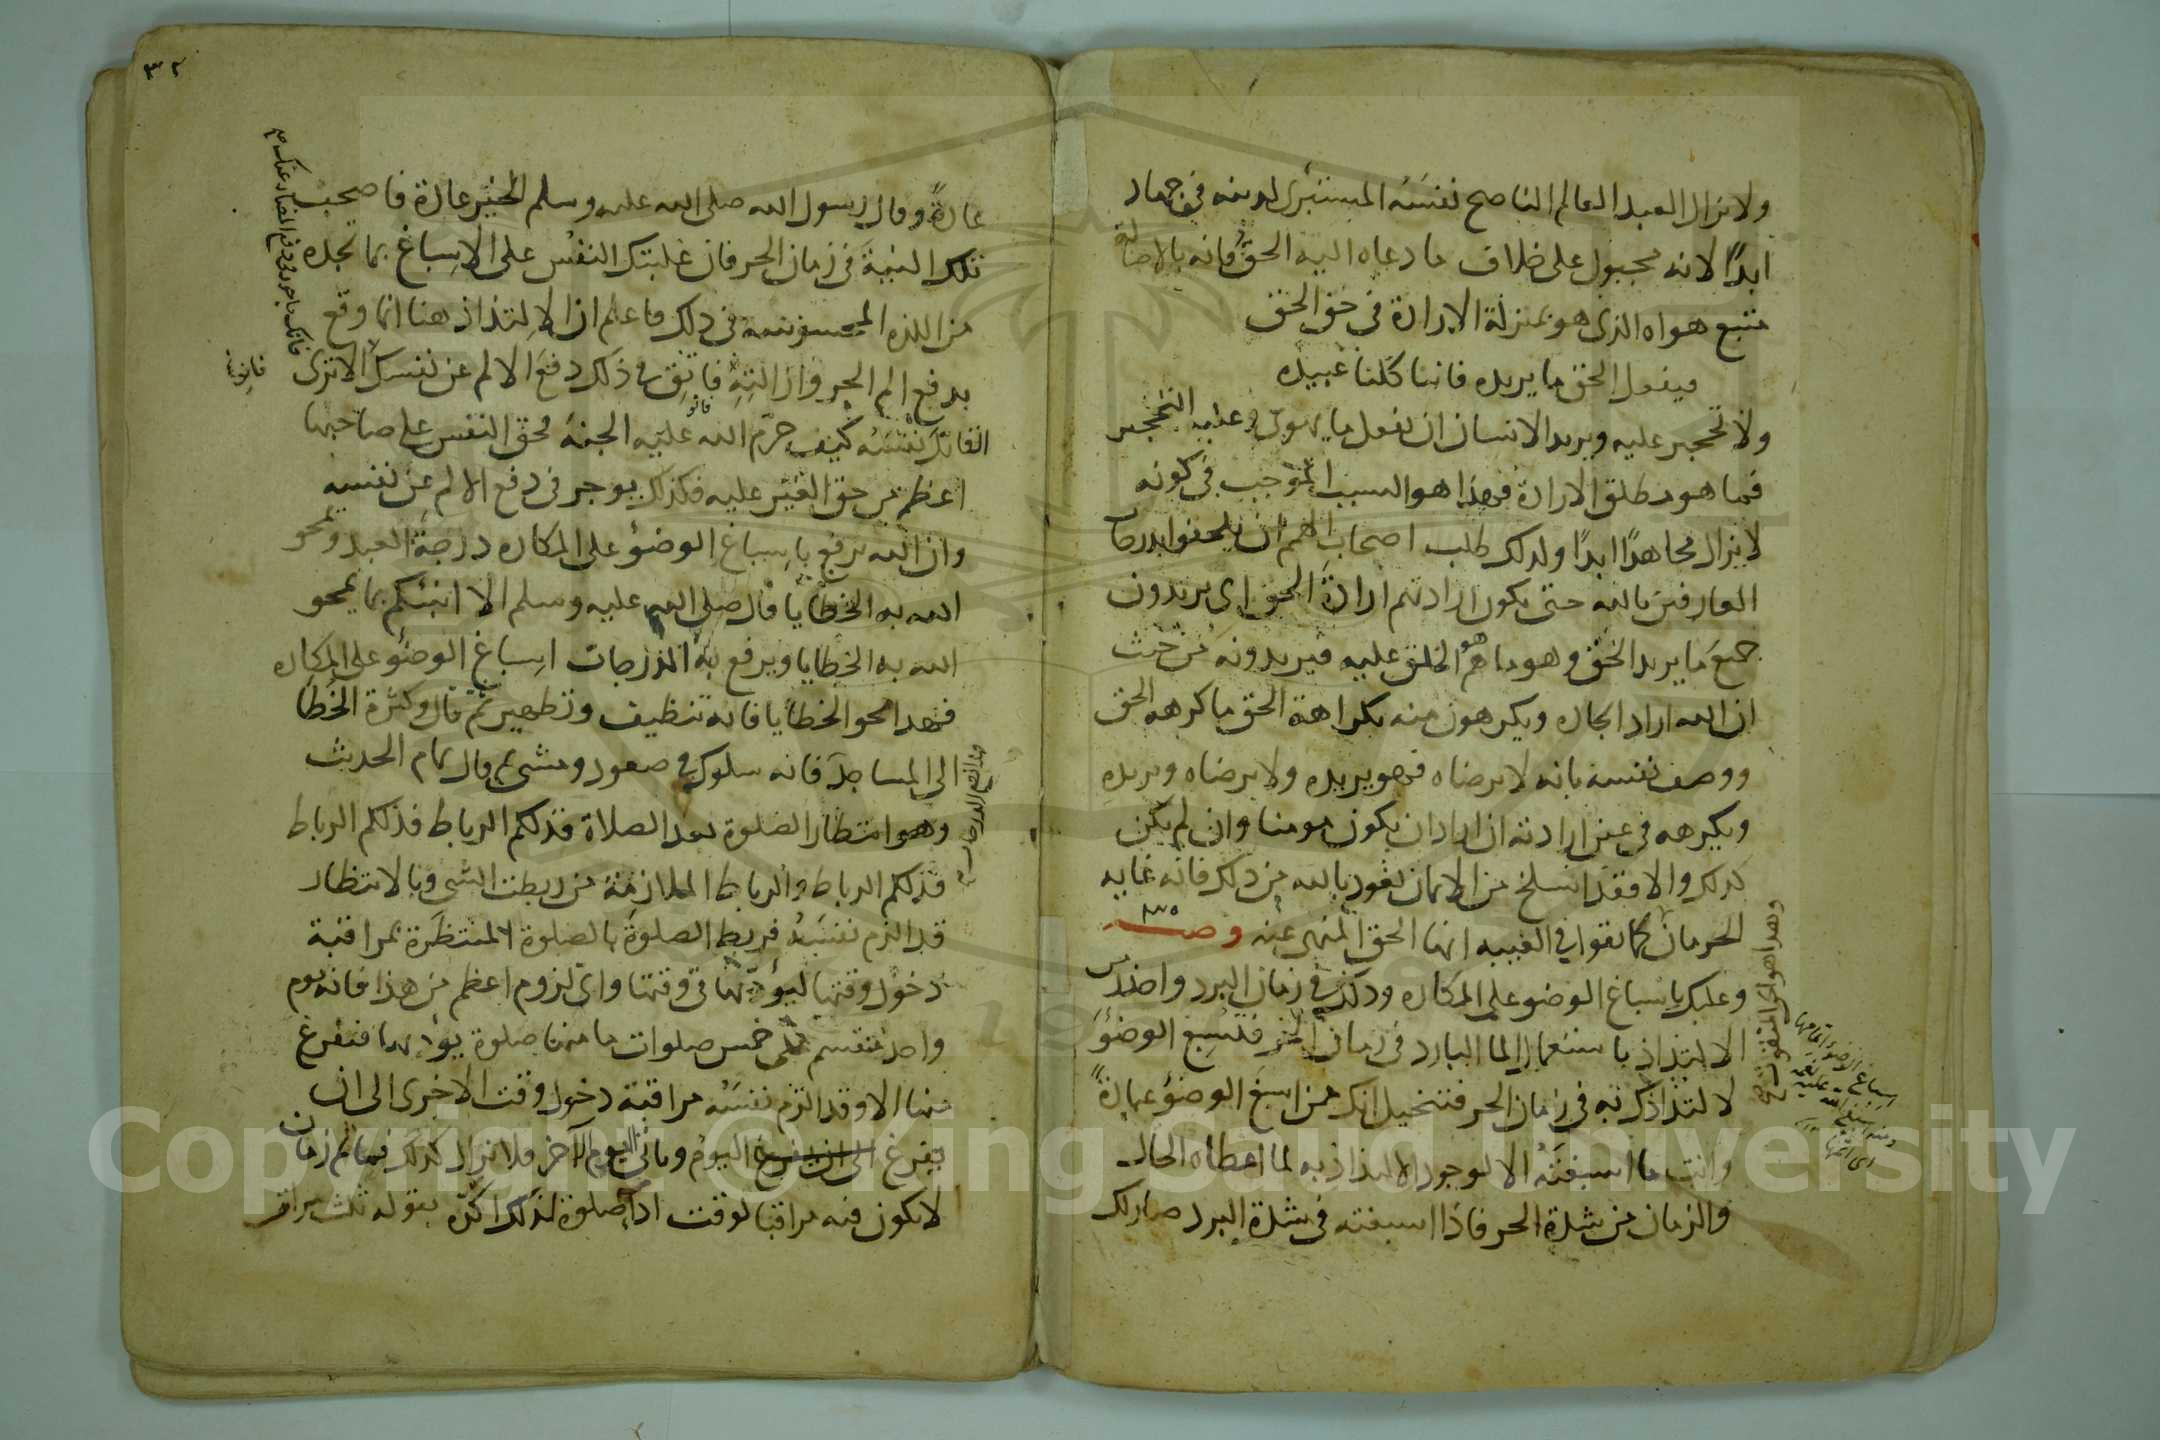 ولا يزال العبد العالم الناصح نفسَهُ المستبرئ لدينه في جهاد
ابدًا لانه مجبول على خلاف ما دعاه اليه الحقُّ فانه بالاصالة
متبع هواه الذى هو بمنزلة الارادة في حق الحق
فيفعل الحق ما يريده فاننا كلنا عبيده
ولا تحجير عليه ويريد الانسان ان يفعل ما يهوى وعليه التحجير
فما هو مطلق الارادة فهذا هو السبب الموجب في كونه
لا يزال مجاهدًا ابدًا ولذلك طلب اصحاب الهمم ان يلحقوا بدرجات
العارفين بالله حتى يكون ارادتهم ارادة الحق اى يريدون
جميع ما يريد الحق وهو ما هُم الخلق عليه فيريدونه من حيث
ان الله اراد ايجاده ويكرهون منه بكراهة الحق ما كرهه الحق
ووصف نفسه بانه لا يرضاه فهو يريده ولا يرضاه ويريده
ويكرهه في عين ارادته ان اراد ان يكون مومنا وان لم يكن
كذلك والا فقد انسلخ من الايمان نعوذ بالله من ذلك فانه غاية
الحرمان كما نقول في الغيبة انها الحق المنهي عنه وصية
وعليك باسباغ الوضو على المكاره وذلك في زمان البرد واحذر من
الالتذاذ باستعمال الما البارد في زمان الحر فتسبغ الوضوءَ
لالتذاذك به في زمان الحر فتتخيل انك ممن اسبغ الوضوءَ عبادةً
وانت ما اسبغتَهُ الا لوجود الالتذاذ به لما اعطاه الحال
والزمان من شدة الحر فاذا اسبغته في شدة البرد صار لك
وهذا هو الحق المنفور صح
اسباغ الوضوء اتمامها
ومنه اسبغ الله عليه النعمة
اى اتمها
٣٢
عادةً وقال رسول الله صلى الله عليه وسلم الخير عادة فاصحب
تلك النيةَ في زمان الحر فان غلبتك النفسُ على الاسباغ بما تجده
من اللذه المحسوسة في ذلك فاعلم ان الالتذاذ هنا انما وقع
بدفع الم الحر وازالته فانوِ في ذلك دفعَ الالم عن نفسك الا ترى
القاتلَ نفسَه كيف حرّم الله عليه الجنة فحق النفس على صاحبها
اعظم من حق الغير عليه فكذلك يوجر في دفع الالم عن نفسه
وان الله يرفع باسباغ الوضوء على المكاره درجة العبد ويمحو
الله به الخطايا قال صلى الله عليه وسلم الا انبئكم بما يمحو
الله به الخطايا ويرفع به الدرجات اسباغ الوضوء على المكاره
فهذا محو الخطايا فانه تنظيف وتطهير ثم قال وكثرة الخُطا
الى المساجد فانه سلوك في صعود ومشي ثم قال تمام الحديث
وهو انتظار الصلوة بعد الصلاة فذلكم الرباط فذلكم الرباط
فذلكم الرباط والرباط الملازمة من ربطت الشي وبالانتظار
قد الزم نفسَهُ فربط الصلوةَ بالصلوة المنتظَرة بمراقبة
دخول وقتها ليؤديها في وقتها واىّ لزوم اعظم من هذا فانه يوم
واحد منقسم على خمس صلوات ما منها صلوة يؤديها فتفرغ
منها الا وقد الزم نفسَهُ مراقبة دخول وقت الاخرى الى ان
يفرغ الى ان يفرغ اليوم وياتى اليوم الآخر فلا يزال كذلك فما ثم زمان
لا يكون فيه مراقبا لوقت اداء صلوة لذلك اكّده بقوله ثلث مرات
هذا رفع الدرجات صح
Copyright © King Saud University